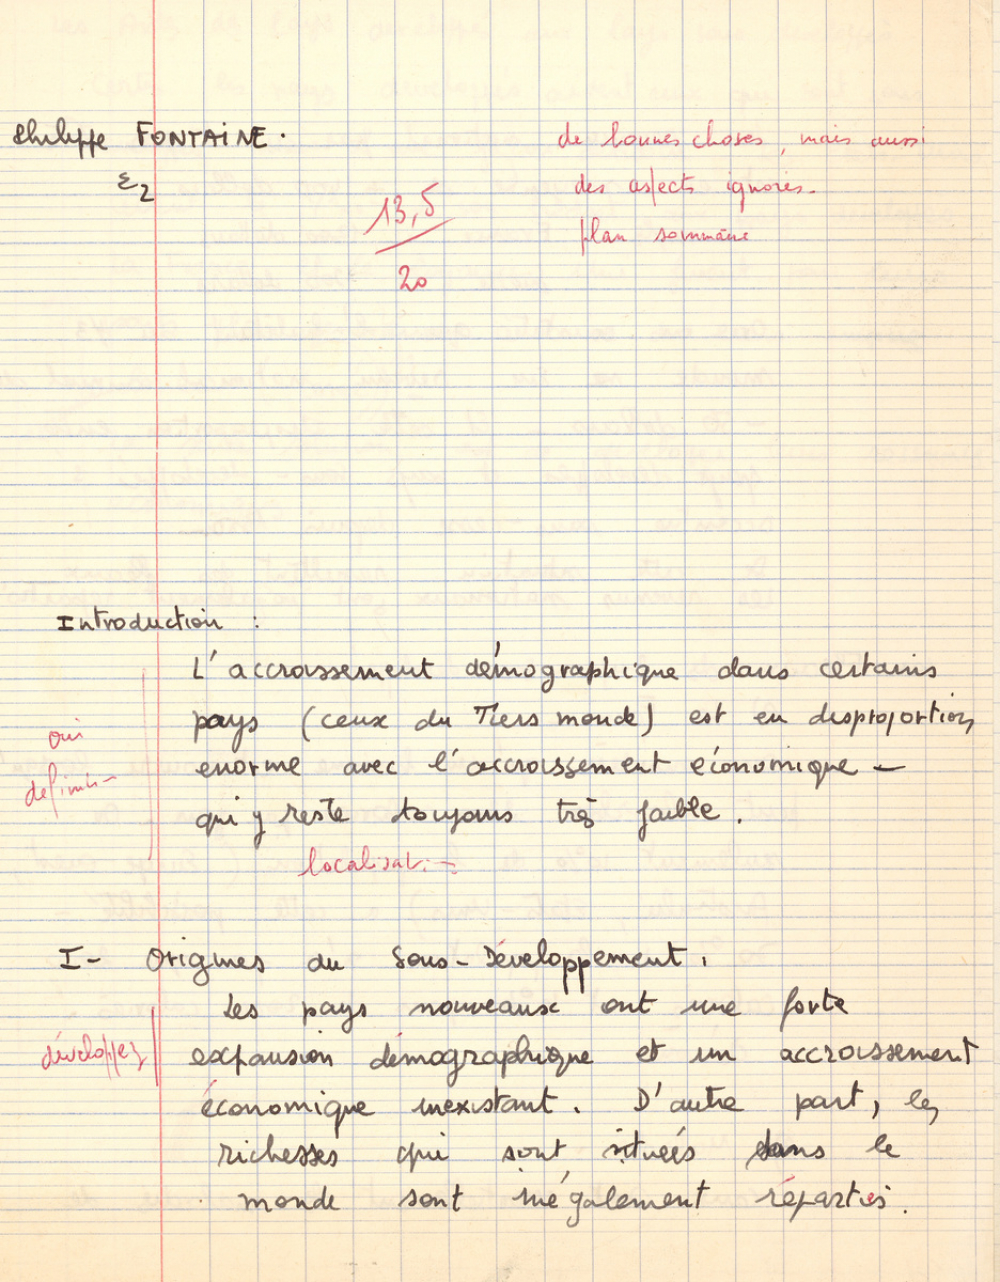 Philippe FONTAINE.
ε2
de bonnes choses, mais aussi
des aspects ignorés.
plan sommaire
13,5
20
Introduction :
L'accroissement démographique dans certains
pays (ceux du Tiers monde) est en disproportion
enorme avec l'accroissement économique -
qui y reste toujours très faible.
oui
définiti-
localisati-
I- Origines du Sous-Développement.
Les pays nouveaux ont une forte
expansion démographique et un accroissement
économique inexistant. D'autre part, les
richesses qui sont situées dans le
monde sont inégalement réparties.
développez